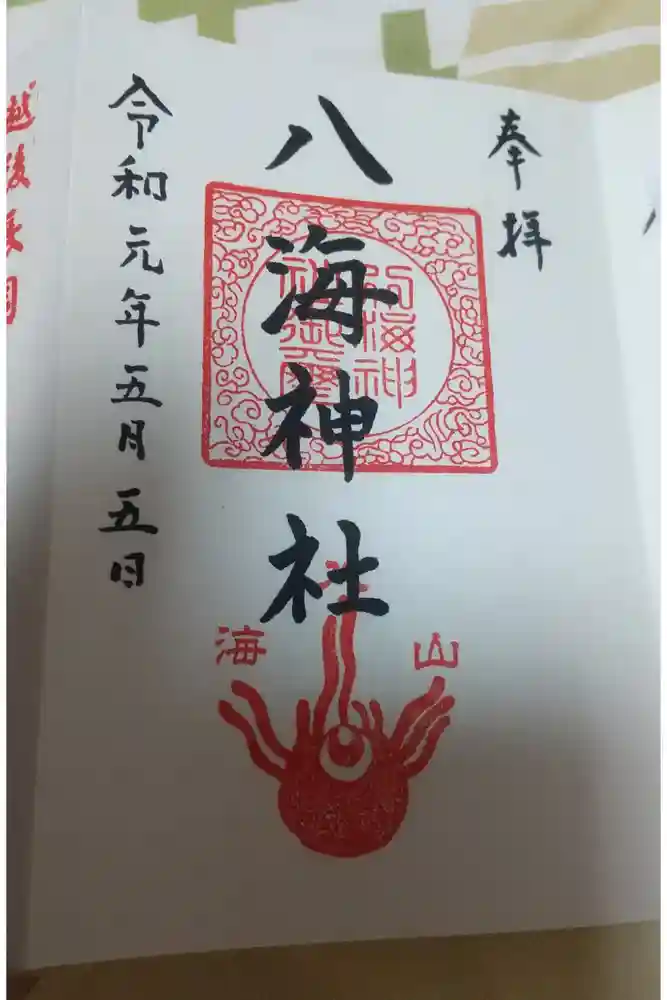 奉拝
八海神社
八海神
社御璽
山
海
令和元年五月五日
越後長岡